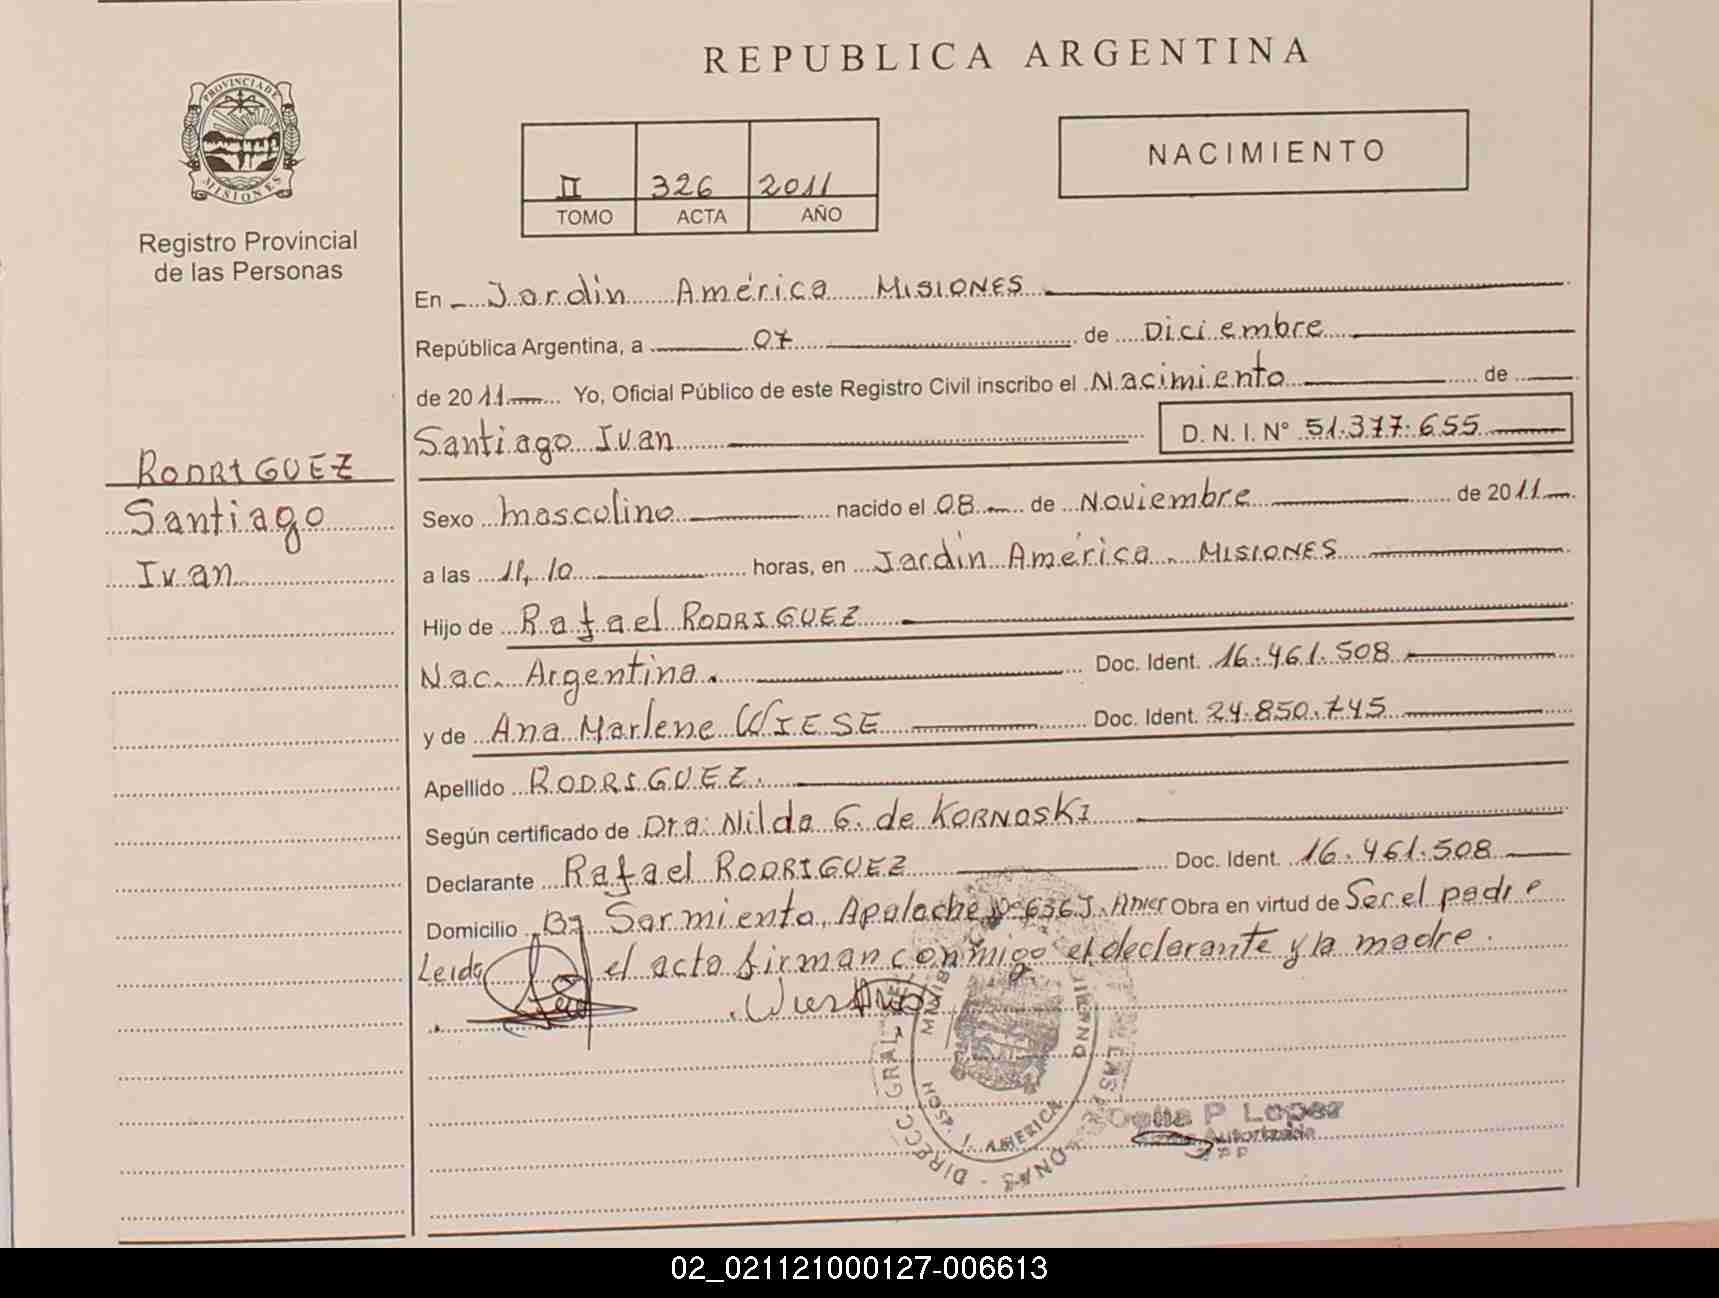 REPUBLICA ARGENTINA
PROVINCIA DE
MISIONES
Registro Provincial
de las Personas
II 326 2011
TOMO ACTA AÑO
NACIMIENTO
RODRIGUEZ
Santiago
Ivan
En Jardín América MISIONES
República Argentina, a 07 de Diciembre
de 2011 Yo, Oficial Público de este Registro Civil inscribo el Nacimiento de
Santiago Ivan D. N. I. N° 51.377.655
Sexo masculino nacido el 08 de Noviembre de 2011
a las 11,10 horas, en Jardín América - MISIONES
Hijo de Rafael RODRIGUEZ
Nac. Argentina. Doc. Ident. 16.461.508
y de Ana Marlene WIESE Doc. Ident. 24.850.745
Apellido RODRIGUEZ.
Según certificado de Dra: Nilda G. de KORNOSKI
Declarante Rafael RODRIGUEZ Doc. Ident. 16.461.508
Domicilio B° Sarmiento, Apalache N° 636 J. Amer Obra en virtud de Ser el padre
Leida el acta firman conmigo el declarante y la madre.
DIRECC. GRAL.
HOSP. J. AMERICA
P Lopez
Autorizada
02_021121000127-006613